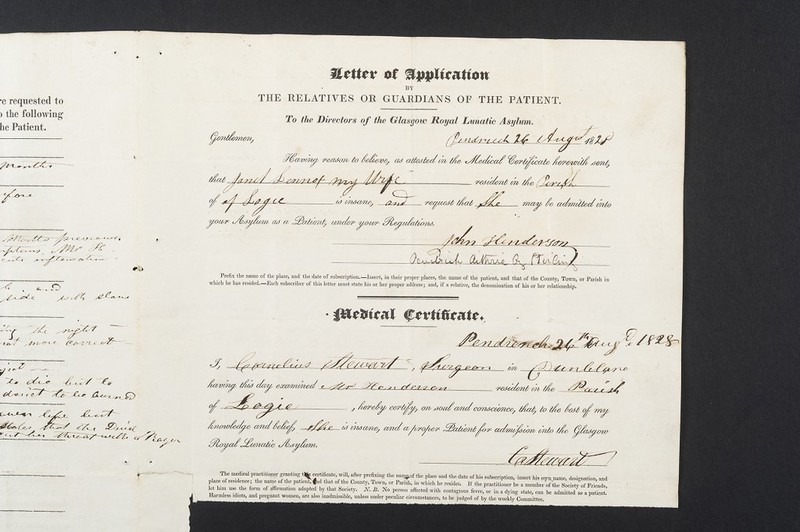 re requested to
o the following
he Patient.
months
before
Letter of Application
BY
THE RELATIVES OR GUARDIANS OF THE PATIENT.
To the Directors of the Glasgow Royal Lunatic Asylum.
Gentlemen, 26 Augst 1828
Having reason to believe, as attested in the Medical Certificate herewith sent,
that Janet my Wife resident in the Parish
of of Logie is insane, and request that She may be admitted into
your Asylum as a Patient, under your Regulations.
John Henderson
by Stirling
Prefix the name of the place, and the date of subscription.—Insert, in their proper places, the name of the patient, and that of the County, Town, or Parish in
which he has resided.—Each subscriber of this letter must state his or her proper address; and, if a relative, the denomination of his or her relationship.
Medical Certificate.
26th Augt 1828
I, Cornelius Stewart, Surgeon in Dunblane
having this day examined Mrs Henderson resident in the Parish
of Logie, hereby certify, on soul and conscience, that, to the best of my
knowledge and belief, She is insane, and a proper Patient for admission into the Glasgow
Royal Lunatic Asylum.
C Stewart
The medical practitioner granting the certificate, will, after prefixing the name of the place and the date of his subscription, insert his own name, designation, and
place of residence; the name of the patient, and that of the County, Town, or Parish, in which he resides. If the practitioner be a member of the Society of Friends,
let him use the form of affirmation adopted by that Society. N. B. No person affected with contagious fever, or in a dying state, can be admitted as a patient.
Harmless idiots, and pregnant women, are also inadmissible, unless under peculiar circumstances, to be judged of by the weekly Committee.